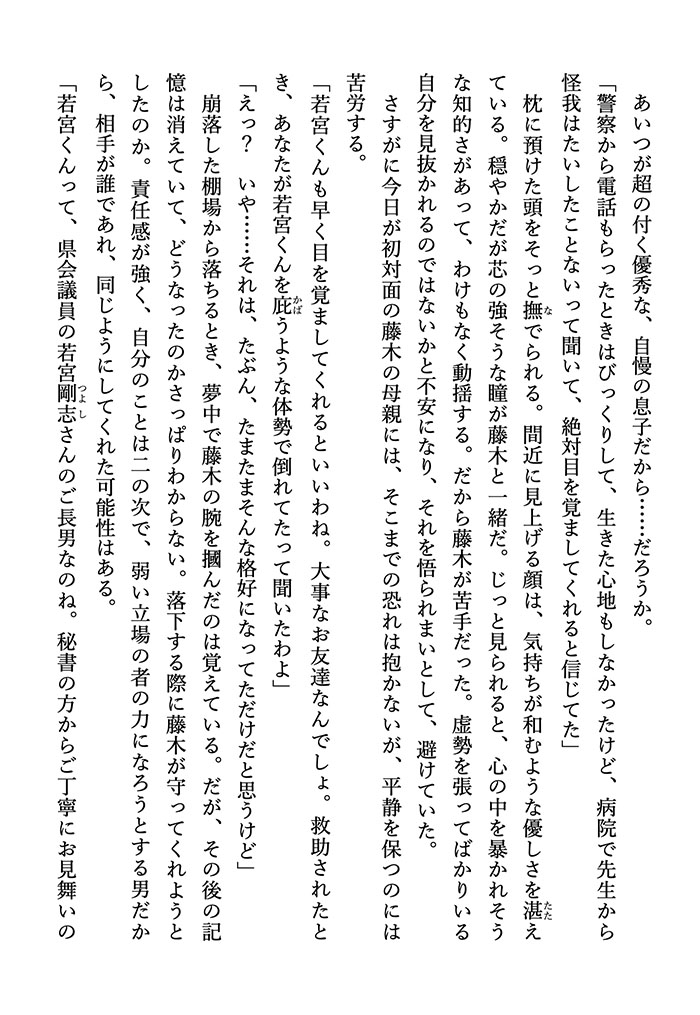 あいつが超の付く優秀な、自慢の息子だから……だろうか。
「警察から電話もらったときはびっくりして、生きた心地もしなかったけど、病院で先生から
怪我はたいしたことないって聞いて、絶対目を覚ましてくれると信じてた」
枕に預けた頭をそっと撫でられる。間近に見上げる顔は、気持ちが和むような優しさを湛え
ている。穏やかだが芯の強そうな瞳が藤木と一緒だ。じっと見られると、心の中を暴かれそう
な知的さがあって、わけもなく動揺する。だから藤木が苦手だった。虚勢を張ってばかりいる
自分を見抜かれるのではないかと不安になり、それを悟られまいとして、避けていた。
さすがに今日が初対面の藤木の母親には、そこまでの恐れは抱かないが、平静を保つのには
苦労する。
「若宮くんも早く目を覚ましてくれるといいわね。大事なお友達なんでしょ。救助されたと
き、あなたが若宮くんを庇うような体勢で倒れてたって聞いたわよ」
「えっ?　いや……それは、たぶん、たまたまそんな格好になってただけだと思うけど」
崩落した棚場から落ちるとき、夢中で藤木の腕を摑んだのは覚えている。だが、その後の記
憶は消えていて、どうなったのかさっぱりわからない。落下する際に藤木が守ってくれようと
したのか。責任感が強く、自分のことは二の次で、弱い立場の者の力になろうとする男だか
ら、相手が誰であれ、同じようにしてくれた可能性はある。
「若宮くんって、県会議員の若宮剛志さんのご長男なのね。秘書の方からご丁寧にお見舞いの